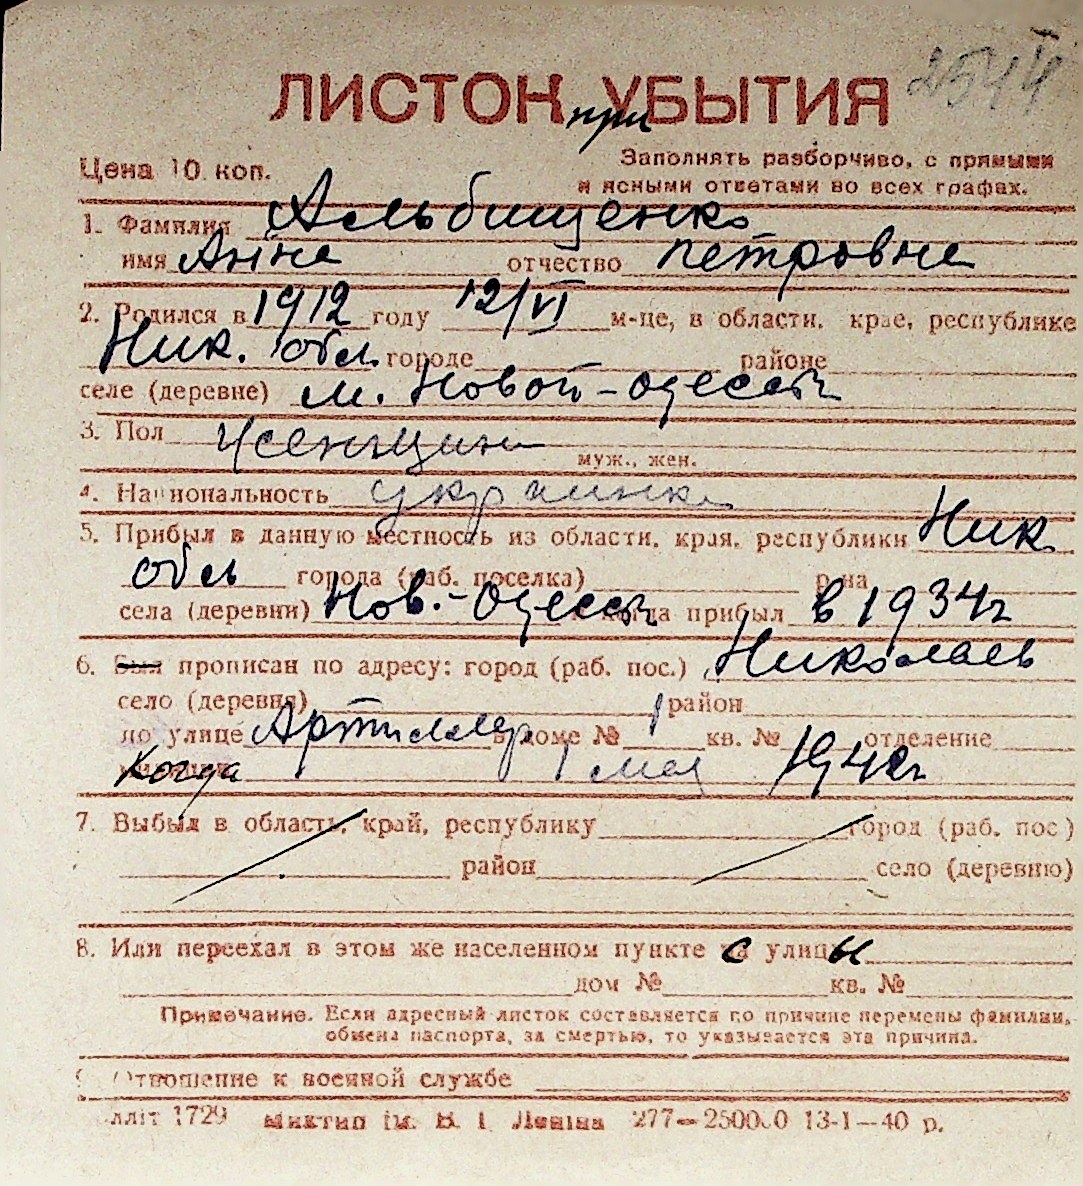 2544
ЛИСТОК при УБЫТИЯ
Цена 10 коп.
Заполнять разборчиво, с прямыми
и ясными ответами во всех графах.
1. Фамилия Альбищенко
имя Анна отчество Петровна
2. Родился в 1912 году 12/VI м-це, в области, крае, республике
Ник. обл. городе районе
селе (деревне) м. Новой-Одессы
3. Пол женщина
муж., жен.
4. Национальность украинка
5. Прибыл в данную местность из области, края, республики Ник
обл города (раб. поселка) р-на
села (деревни) Нов.-Одессы когда прибыл в 1934г
6. Был прописан по адресу: город (раб. пос.) Николаев
село (деревня) район
по улице Артиллер в доме № 1 кв. № отделение
Когда 1 мая 1942г
7. Выбыл в область, край, республику город (раб. пос.)
район село (деревню)
8. Или переехал в этом же населенном пункте с улицы
дом № кв. №
Примечание. Если адресный листок составляется по причине перемены фамилии,
обмена паспорта, за смертью, то указывается эта причина.
9. Отношение к военной службе
лліт 1729 Миктип ім. В. І. Леніна 277—250000 13-1—40 р.